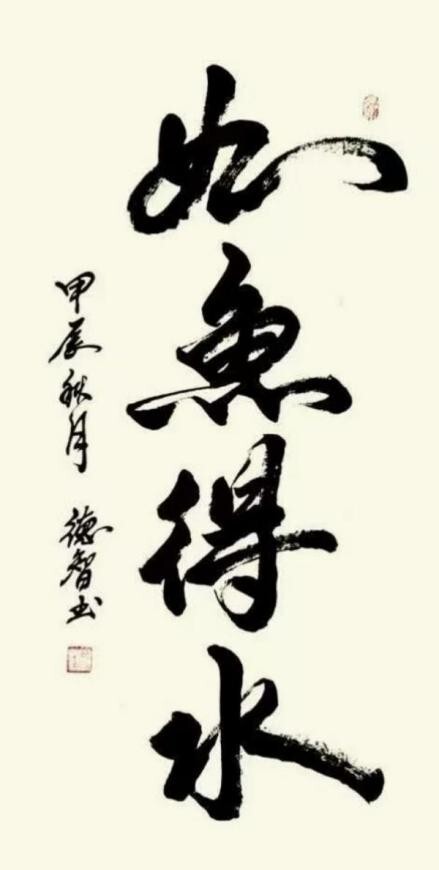 如魚得水
甲辰秋月 德智书